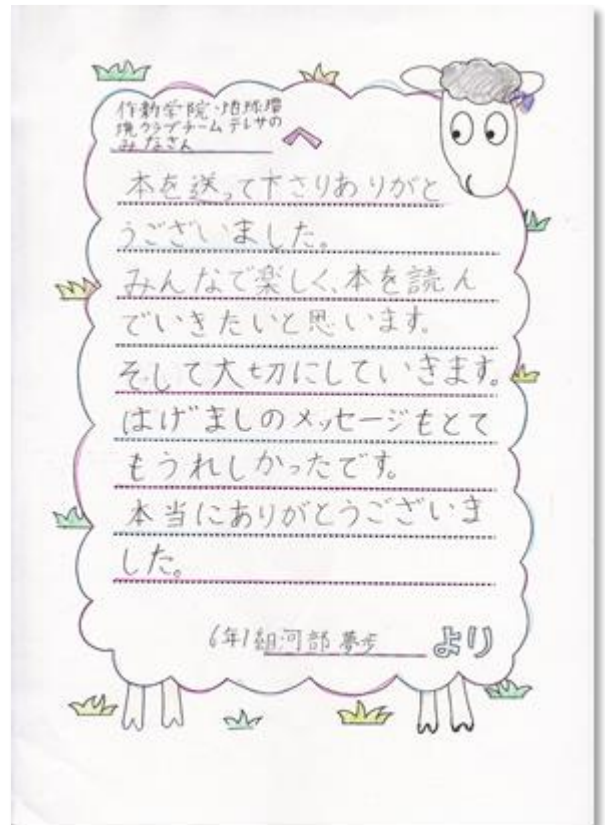 作新学院・地球環
境クラブチームテレサの
みなさん
へ
本を送って下さりありがと
うございました。
みんなで楽しく、本を読ん
でいきたいと思います。
そして大切にしていきます。
はげましのメッセージもとて
もうれしかったです。
本当にありがとうございま
した。
6年1組河部 夢歩
より